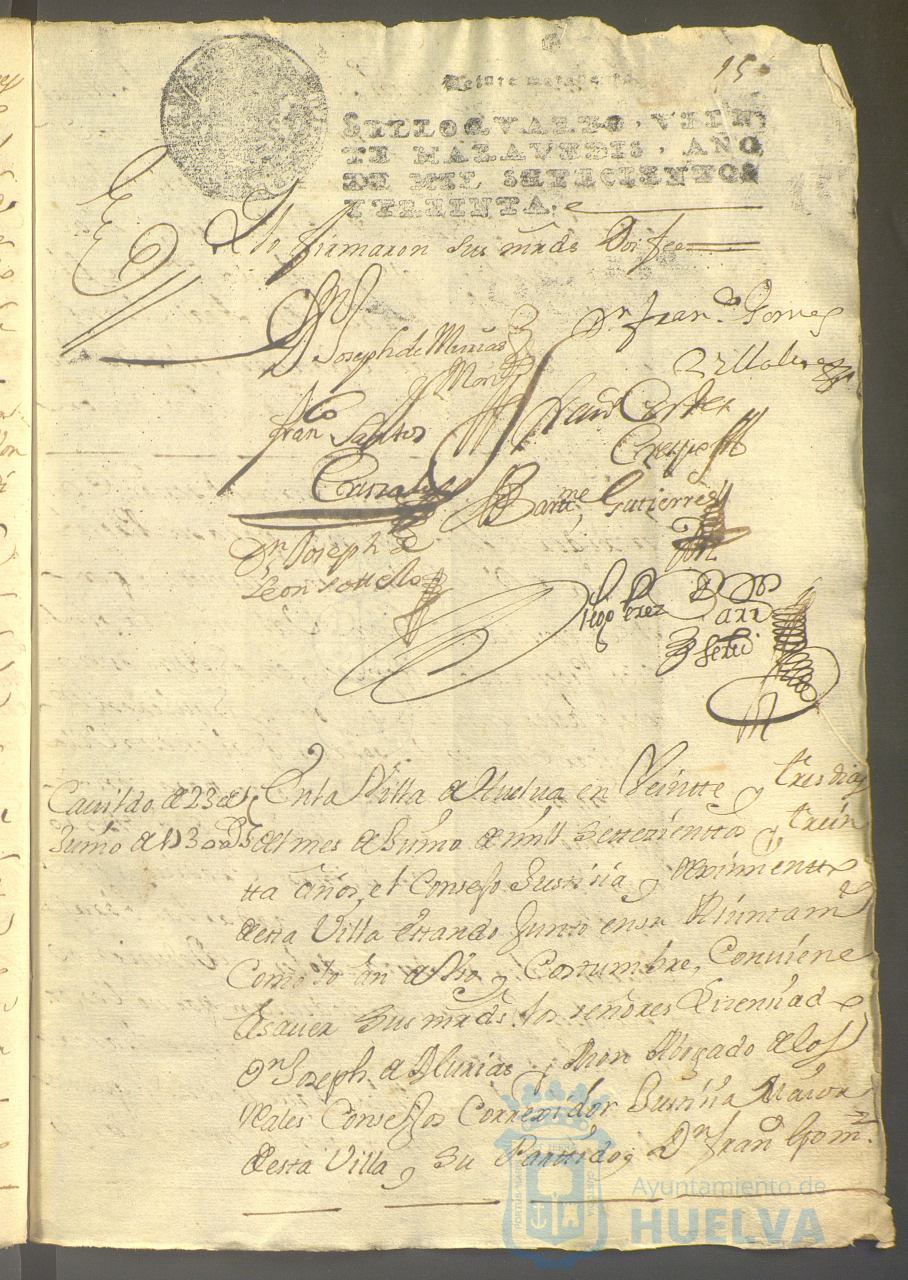 15
Veinte marauedis
SELLO QVARTO, VEIN
TE MARAVEDIS, AÑO
DE MIL SETECIENTOS
Y TREINTA.
Lo firmaron sus mrds Doi fee
Dn Joseph de Murias
y Mon
Dn Franco Gomes
Villalo
Franco Santos
Franco Cortes
Crespo
Barme Gutierres
Dn Joseph de
Leon Sottello
Diego Perez
Cauildo de 23 de
Junio de 1730
En la Villa de Huelua en Veintte y tres dias
del mes de Junio de mill settezientta y trein
tta años, el Consejo Justicia y Reximientto
desta Villa estando Junto en su Aiuntamto
Como lo an de Vso y Costumbre, Conviene
a sauer Sus mrds los señores Lizenciado
Dn Joseph de Murias y Mon Abogado de los
Reales Consejos Correxidor Justicia Maior
desta Villa y Su Parttido; Dn Franco Gomz
Ayuntamiento de
HUELVA